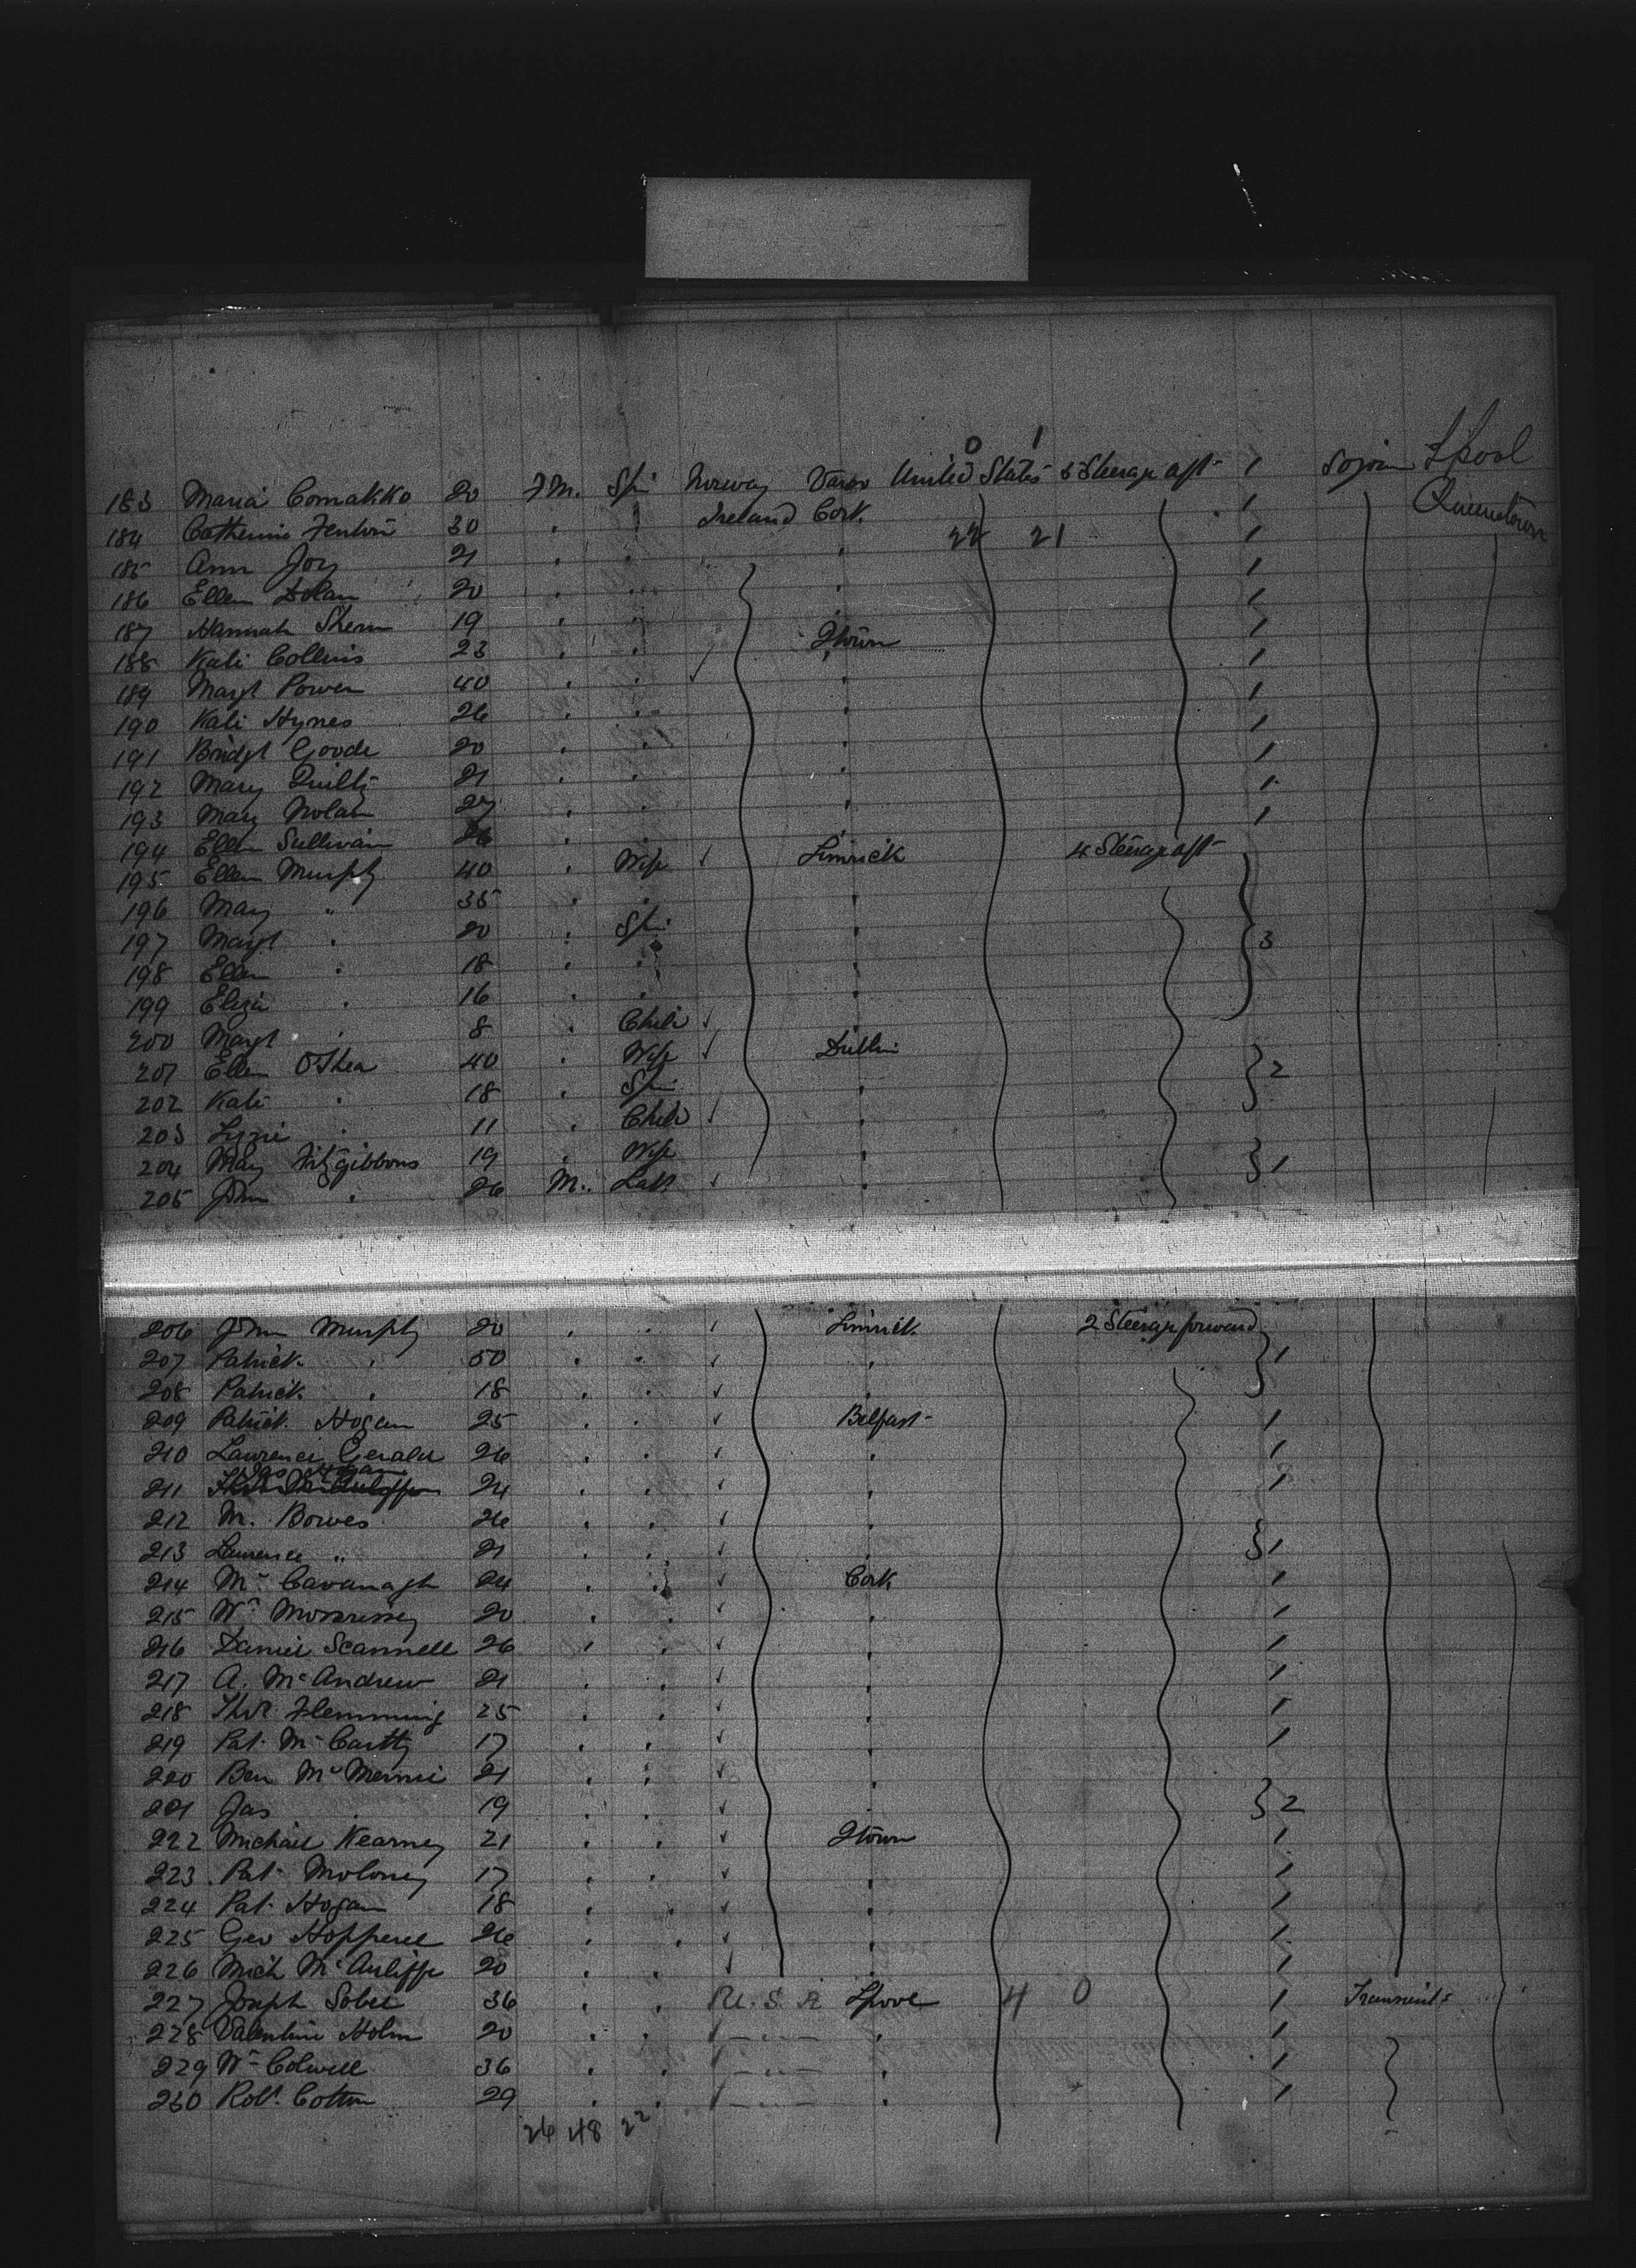 0 1
183 Maria Comakko 20 F M. Spi Norway Varao United States 5 Steerage aft 1 Sojourn L'pool
184 Catherine Fenton 30 " " Ireland Cork 1 Queenstown
22 21
185 Ann Joy 21 " " " 1
186 Ellen Dolan 20 " " " 1
187 Hannah Shern 19 " " " 1
188 Kate Collins 23 " " Qtown 1
189 Margt Power 40 " " " 1
190 Kate Hynes 26 " " " 1
191 Bridgt Goode 20 " " " 1
192 Mary Quilty 21 " " " 1
193 Mary Nolan 27 " " " 1
194 Ellen Sullivan 26 " " " 1
195 Ellen Murphy 40 " Wife Limrick 4 Steerage aft
196 Mary " 35 " " "
197 Margt " 20 " Spi " 3
198 Ellen " 18 " " "
199 Eliza " 16 " " "
200 Margt " 8 " Child "
201 Ellen O'Shea 40 " Wife Dublin
202 Kate " 18 " Spi " 2
203 Lizzie " 11 " Child "
204 Mary Fitzgibbons 19 " Wife "
205 John " 26 M. Lab " 1
206 John Murphy 20 " " Limrick 2 Steerage forward
207 Patrick " 50 " " " 1
208 Patrick " 18 " " "
209 Patrick Hogan 25 " " Belfast 1
210 Lawrence Gerald 26 " " " 1
Jas Hogan
211 24 " " " 1
212 M. Bowes 26 " " "
213 Laurence " 21 " " " 1
214 Mc Cavanagh 24 " " Cork 1
215 Wm Morrissey 20 " " " 1
216 Daniel Scannell 26 " " " 1
217 A. McAndrew 21 " " " 1
218 Thos. Flemming 25 " " " 1
219 Pat. McCartty 17 " " " 1
220 Ben 21 " " "
221 Jas " 19 " " " 2
222 Michael Kearney 21 " " Qtown 1
223 Pat. Moloney 17 " " " 1
224 Pat. Hogan 18 " " " 1
225 Geo Hopperel 26 " " " 1
226 Mich McAuliffe 20 " " " 1
227 Joseph Sobel 36 " " U.S.A Lpool 4 0 1 Transient
228 Valentine Holm 20 " " " " 1
229 Wm Colwell 36 " " " " 1
230 Robt. Cotton 29 " " " " 1
26 48 22